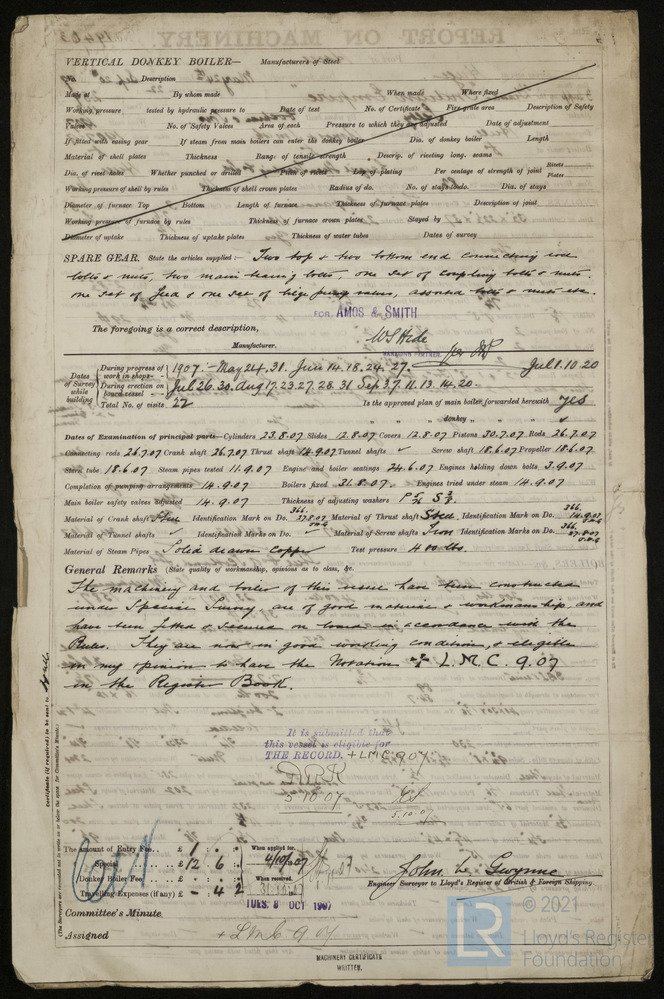 VERTICAL DONKEY BOILER— Manufacturers of Steel
No. Description
Made at By whom made When made Where fixed
Working pressure tested by hydraulic pressure to Date of test No. of Certificate Fire grate area Description of Safety
Valves No. of Safety Valves Area of each Pressure to which they are adjusted Date of adjustment
If fitted with easing gear If steam from main boilers can enter the donkey boiler Dia. of donkey boiler Length
Material of shell plates Thickness Range of tensile strength Descrip. of riveting long. seams
Dia. of rivet holes Whether punched or drilled Pitch of rivets Lap of plating Per centage of strength of joint Rivets Plates
Working pressure of shell by rules Thickness of shell crown plates Radius of do. No. of stays to do. Dia. of stays
Diameter of furnace Top Bottom Length of furnace Thickness of furnace plates Description of joint
Working pressure of furnace by rules Thickness of furnace crown plates Stayed by
Diameter of uptake Thickness of uptake plates Thickness of water tubes Dates of survey
SPARE GEAR. State the articles supplied:— Two top & two bottom end connecting rod
bolts & nuts, two main bearing bolts, one set of coupling bolts & nuts
one set of feed & one set of bilge pump valves, assorted bolts & nuts etc.
FOR AMOS & SMITH
The foregoing is a correct description,
W S Hide
Manufacturer. MANAGING PARTNER.
Dates of Survey while building
During progress of work in shops -- 1907:- May 24. 31. Jun 14. 18. 24. 27. Jul 1. 10. 20
During erection on board vessel --- Jul 26. 30. Aug 17. 23. 27. 28. 31 Sep 3. 7. 11. 13. 14. 20.
Total No. of visits 22 Is the approved plan of main boiler forwarded herewith yes
" " " donkey " " "
Dates of Examination of principal parts—Cylinders 23.8.07 Slides 12.8.07 Covers 12.8.07 Pistons 30.7.07 Rods 26.7.07
Connecting rods 26.7.07 Crank shaft 26.7.07 Thrust shaft 14.9.07 Tunnel shafts ✓ Screw shaft 18.6.07 Propeller 18.6.07
Stern tube 18.6.07 Steam pipes tested 11.9.07 Engine and boiler seatings 24.6.07 Engines holding down bolts 3.9.07
Completion of pumping arrangements 14.9.07 Boilers fixed 31.8.07. Engines tried under steam 14.9.07
Main boiler safety valves adjusted 14.9.07 Thickness of adjusting washers
Material of Crank shaft Steel Identification Mark on Do. 366. 27.8.07 Material of Thrust shaft Steel Identification Mark on Do. 366. 14.9.07
Material of Tunnel shafts ✓ Identification Marks on Do. ✓ Material of Screw shafts Iron Identification Marks on Do. 366
Material of Steam Pipes Solid drawn Copper Test pressure 400 lbs.
General Remarks (State quality of workmanship, opinions as to class, &c.
The machinery and boiler of this vessel have been constructed
under Special Survey, are of good material & workmanship, and
have been fitted & secured on board in accordance with the
Rules. They are now in good working condition, & eligible
in my opinion to have the Notation of + L.M.C. 9.07
in the Register Book.
Certificate (if required) to be sent to Hull.
(The Surveyors are requested not to write on or below the space for Committee's Minute.)
It is submitted that
this vessel is eligible for
THE RECORD. + LMC 9.07
5.10.07
5.10.07
The amount of Entry Fee.. £ 1 : - : - When applied for,
Special .. .. £ 12 : 6 : 4/10/07
Donkey Boiler Fee .. .. £ : : When received,
Travelling Expenses (if any) £ - : 4 : 2 31.10.07
John C. Gwynne
Engineer Surveyor to Lloyd's Register of British & Foreign Shipping
TUES. 8 OCT 1907
Committee's Minute
Assigned + LMC 9.07
MACHINERY CERTIFICATE
WRITTEN.
LR
© 2021
Lloyd's Register
Foundation